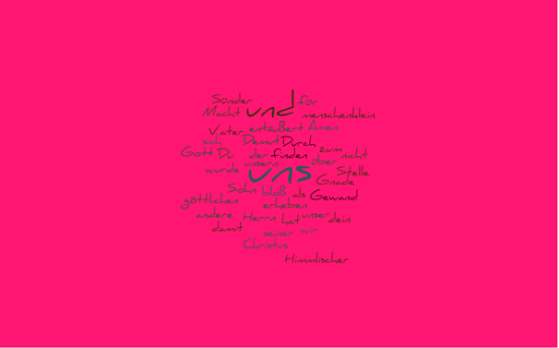 Sonder und for
Macht menschenklein
Vater entzußert Amen
sich Demut Durch
Gott Du der finden zum nicht
wurde unsern über Stelle
uns Gnade
Sohn bloß als Gewand
göttlichen erheben
andere Herrn hat unser dein
damit seiner wir
Christus
Himmlischer